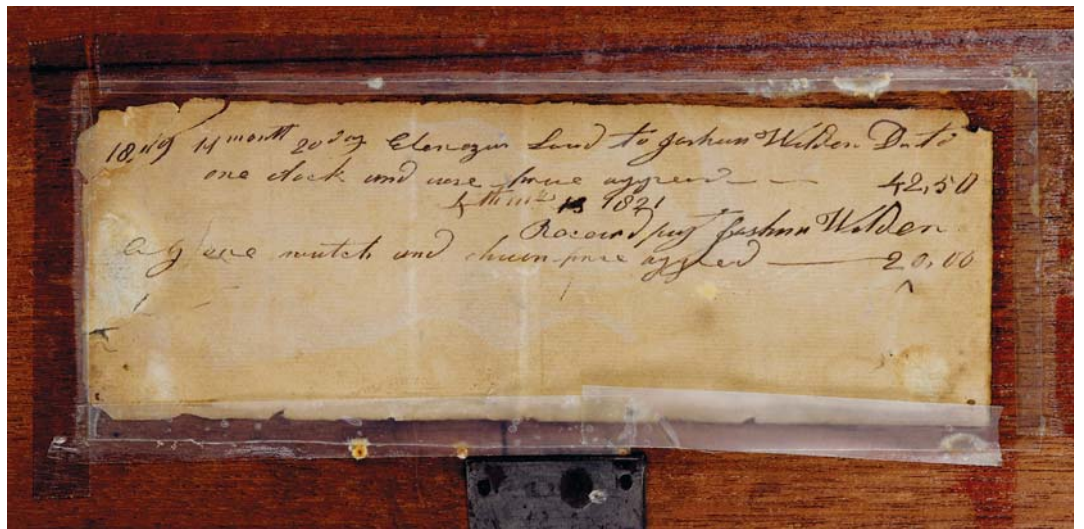 1819 11 month 20 day Ebenezer Lord to Joshua Wilder Dr to
one clock and case price aggred 42,50
4th mo 13 1821
Received pay Joshua Wilder
By one watch and chain price aggred 20,00